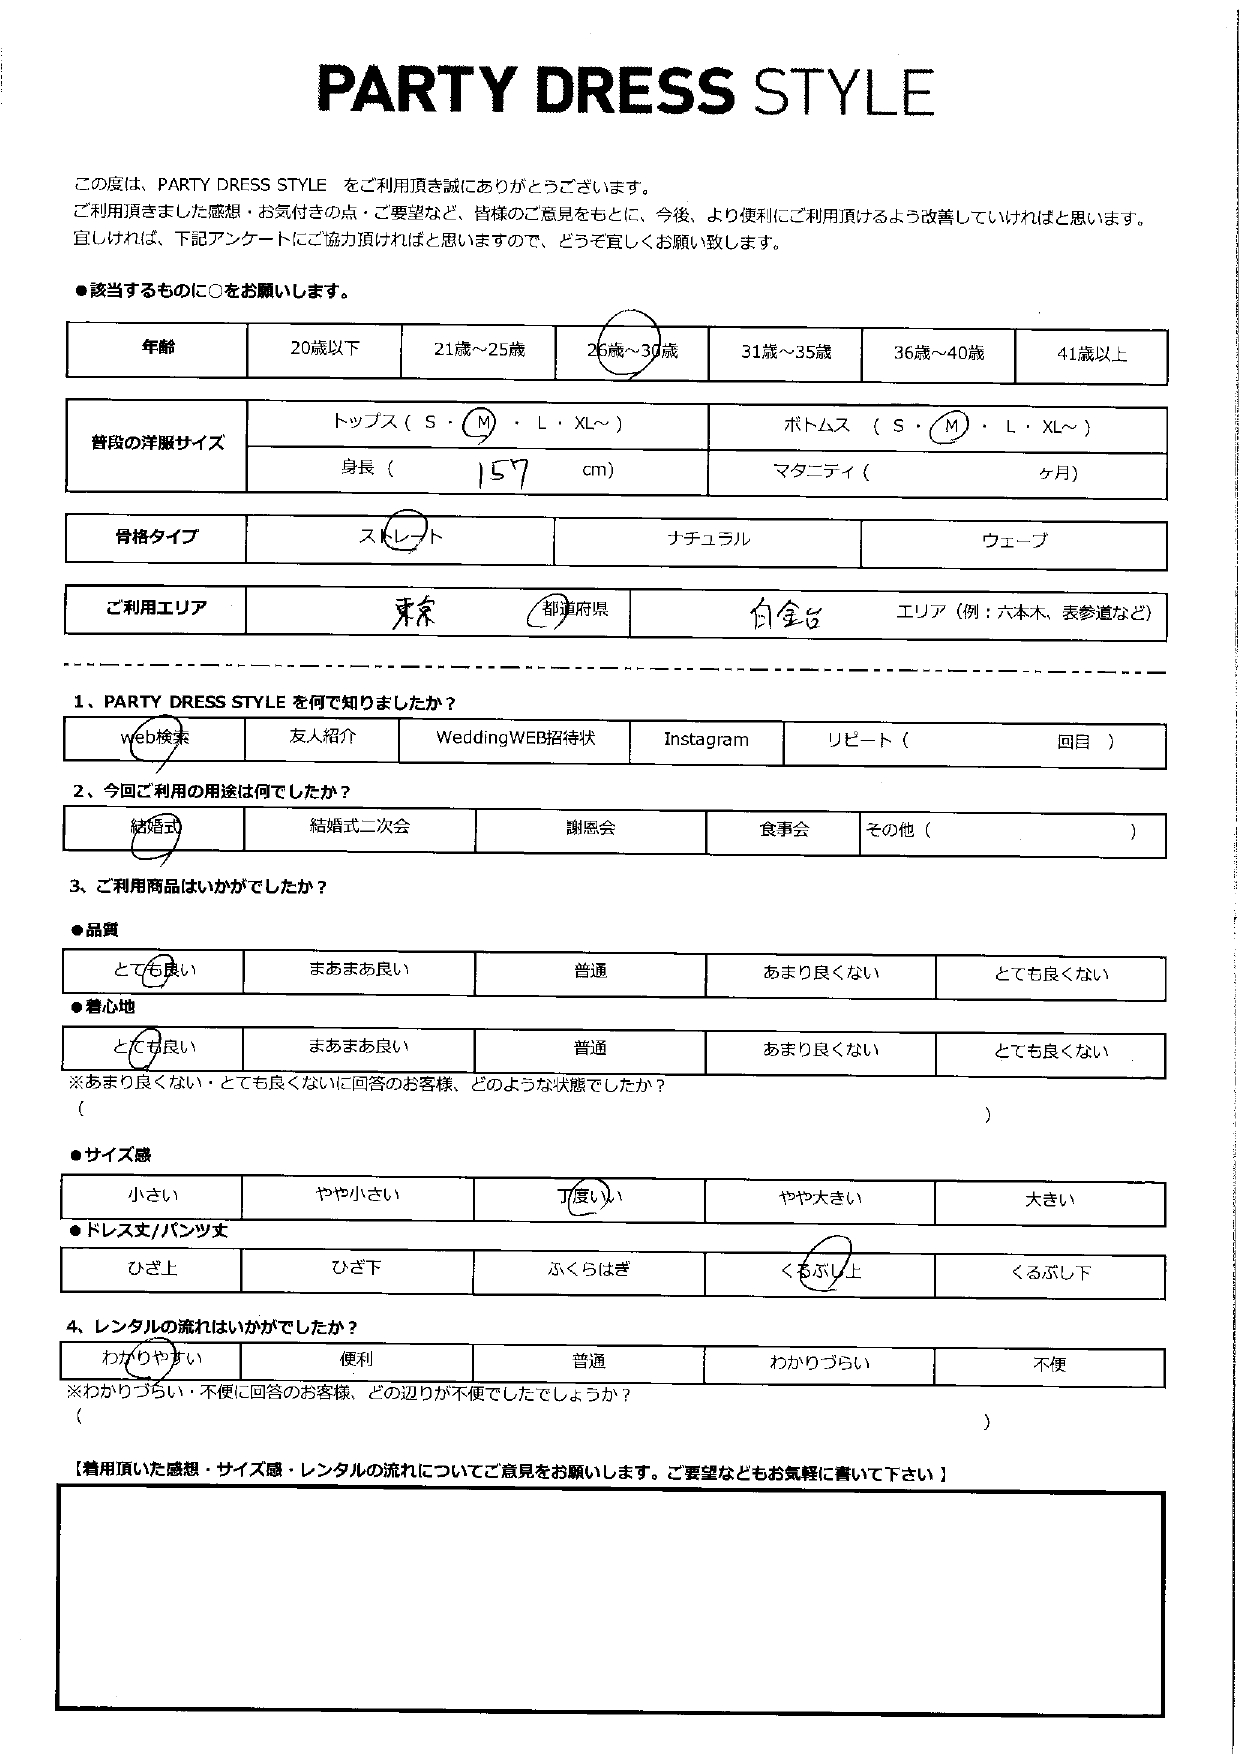 PARTY DRESS STYLE
この度は、PARTY DRESS STYLE　をご利用頂き誠にありがとうございます。
ご利用頂きました感想・お気付きの点・ご要望など、皆様のご意見をもとに、今後、より便利にご利用頂けるよう改善していければと思います。
宜しければ、下記アンケートにご協力頂ければと思いますので、どうぞ宜しくお願い致します。
●該当するものに○をお願いします。
年齢 20歳以下 21歳～25歳 26歳～30歳 31歳～35歳 36歳～40歳 41歳以上
普段の洋服サイズ トップス（ S ・ M ・ L ・ XL～ ） ボトムス （ S ・ M ・ L ・ XL～ ）
身長（ 157 cm） マタニティ（ ヶ月）
骨格タイプ ストレート ナチュラル ウェーブ
ご利用エリア 東京 都道府県 白金台 エリア（例：六本木、表参道など）
1、PARTY DRESS STYLE を何で知りましたか？
web検索 友人紹介 WeddingWEB招待状 Instagram リピート（ 回目 ）
2、今回ご利用の用途は何でしたか？
結婚式 結婚式二次会 謝恩会 食事会 その他（ ）
3、ご利用商品はいかがでしたか？
●品質
とても良い まあまあ良い 普通 あまり良くない とても良くない
●着心地
とても良い まあまあ良い 普通 あまり良くない とても良くない
※あまり良くない・とても良くないに回答のお客様、どのような状態でしたか？
（ ）
●サイズ感
小さい やや小さい 丁度いい やや大きい 大きい
●ドレス丈/パンツ丈
ひざ上 ひざ下 ふくらはぎ くるぶし上 くるぶし下
4、レンタルの流れはいかがでしたか？
わかりやすい 便利 普通 わかりづらい 不便
※わかりづらい・不便に回答のお客様、どの辺りが不便でしたでしょうか？
（ ）
【着用頂いた感想・サイズ感・レンタルの流れについてご意見をお願いします。ご要望などもお気軽に書いて下さい】